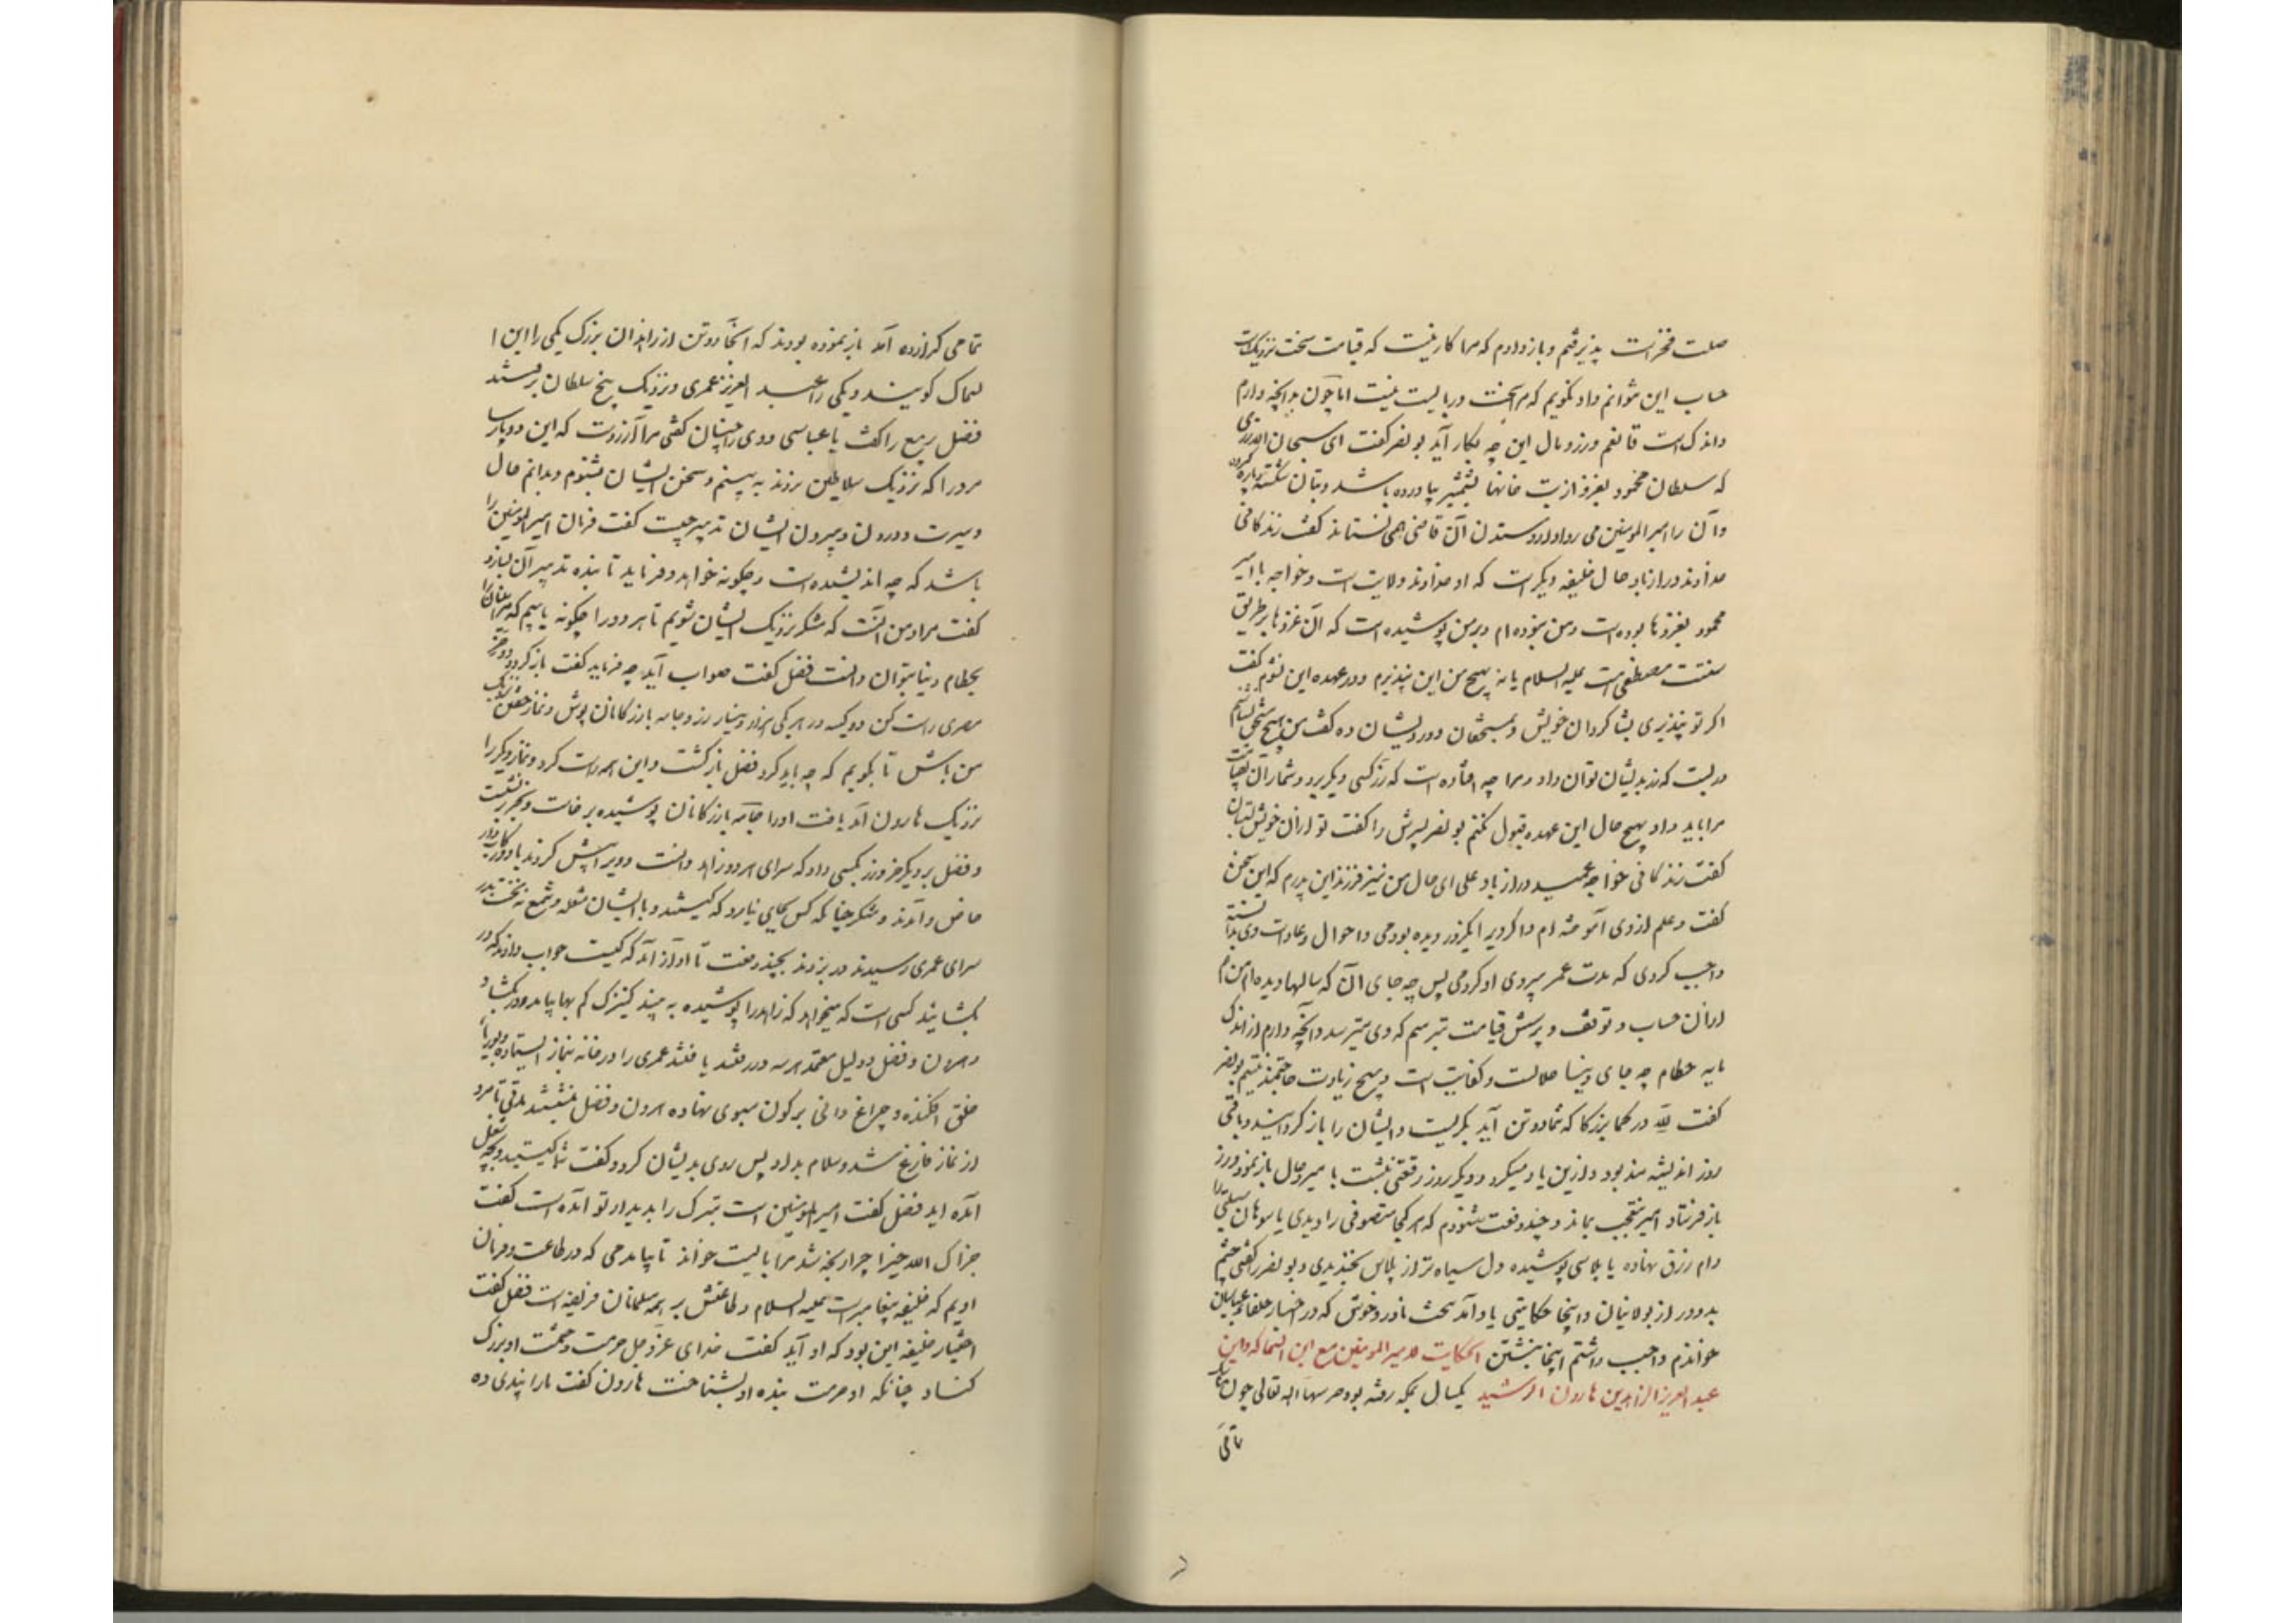 صلت فخرست پذیرفتم و بازدادم که مرا کار نیست که قیامت سخت نزدیکست
حساب این نتوانم داد و نگویم که مرا سخت دربایست نیست اما چون بدانچه دارم
و اندکست قانعم وزر و وبال این چه بکار آید بونصر گفت ای سبحان الله زری
که سلطان محمود بغزو از بت خانها بشمشیر بیاورده باشد و بتان شکسته و پاره کرده
و آن را امیرالمومنین می روا دارد ستدن آن قاضی همی نستاند گفت زندگانی
خداوند دراز باد حال خلیفه دیگر است که او خداوند ولایت است و خواجه با امیر
محمود بغزوها بوده است و من نبوده ام و بر من پوشیده است که آن غزوها بر طریق
سنت مصطفی است علیه السلام یا نه بهیچ من این نپذیرم و در عهده این نشوم گفت
اگر تو نپذیری بشاگردان خویش و بمستحقان و درویشان ده گفت من هیچ مستحق نشناسم
در بست که زر بدیشان توان داد و مرا چه افتاده است که زر کسی دیگر برد و شمار آن بقیامت
مرا باید داد بهیچ حال این عهده قبول نکنم بونصر پسرش را گفت تو ازان خویش بستان
گفت زندگانی خواجه عمید دراز باد علی ای حال من نیز فرزند این پدرم که این سخن
گفت و علم از وی آموخته ام و اگر ویرا یکروز دیده بودمی و احوال و عادات وی بدانسته
واجب کردی که مدت عمر پیروی او کردمی پس چه جای آن که سالها دیده ام من هم
ازان حساب و توقف و پرسش قیامت بترسم که وی میترسد و آنچه دارم از اندک
مایه حطام چه جای دنیا حلالست و کفایتست و بهیچ زیادت حاجتمند نیستم بونصر
گفت لله درکما بزرگا که شما دو تن آید بگریست و ایشان را باز گردانید و باقی
روز اندیشه مند بود و ازین یاد میکرد و دیگر روز رقعتی نبشت با میر و حال باز نمود و زر
باز فرستاد امیر متعجب بماند و چند وقت شنودم که هر کجا متصوفی را دیدی یا سوهان سبلتی را
دام زرق نهاده یا پلاسی پوشیده دل سیاه تر از پلاس بخندیدی و بونصر را گفتی چشم
بد دور از بولانیان و اینجا حکایتی یاد آمد سخت نادر و خوش که در اخبار خلفا عباسیان
خواندم واجب داشتم اینجا نبشتن الحکایت امیر المومنین مع ابن السماک و ابن
عبد العزیز الزاهدین هارون الرشید یکسال بمکه رفته بود حرسها الله تعالی چون مناسک
تمامی
تمامی گزارده آمد باز نموده بودند که آنجا دو تن از زاهدان بزرگ یکی را ابن ا
لسماک گویند و یکی را عبد العزیز عمری و نزدیک هیچ سلطان نرفتند
فضل ربیع را گفت یا عباسی و وی را چنان گفتی مرا آرزوست که این دو پارسا
مرد را که نزدیک سلاطین نروند به بینم و سخن ایشان بشنوم و بدانم حال
و سیرت و درون و بیرون ایشان تدبیر چیست گفت فرمان امیر المومنین را
باشد که چه اندیشیده است و چگونه خواهد و فرماید تا بنده تدبیر آن بسازد
گفت مراد من آنست که متنکر نزدیک ایشان شویم تا هر دو را چگونه یابیم که مراییان را
بحطام دنیا بتوان دانست فضل گفت صواب آید چه فرماید گفت بازگرد و دو خر
مصری راست کن دو کیسه در هر یکی هزار دینار زر و جامه بازرگانان پوش و نماز خفتن نزدیک
من باش تا بگویم که چه باید کرد فضل بازگشت و این همه راست کرد و نماز دیگر را
نزدیک هارون آمد یافت او را جامه بازرگانان پوشیده برخاست و بخر بر نشست
و فضل بر دیگر خر و زر بکسی داد که سرای هر دو زاهد دانست و ویرا پیش کردند با دو رکابدار
خاص و آمدند متنکر چنانکه کس بجای نیارد که کیستند و با ایشان مشعله و شمع نه نخست بدر
سرای عمری رسیدند در بزدند بچند دفعت تا آواز آمد که کیست جواب دادند که در
بگشائید کسی است که میخواهد که زاهد را پوشیده به بیند کنیزک کم بها بیامد و در بگشاد
هرون و فضل و دلیل معتمد هر سه در رفتند یافتند عمری را در خانه بنماز ایستاده و بوریا
خلق افکنده و چراغ دانی بر کون سبوی نهاده هرون و فضل بنشستند مدتی تا مرد
از نماز فارغ شد و سلام بداد پس روی بدیشان کرد و گفت شما کیستید و بچه شغل
آمده اید فضل گفت امیر المومنین است تبرک را بدیدار تو آمده است گفت
جزاک الله خیرا چرا رنجه شد مرا بایست خواند تا بیامدمی که در طاعت و فرمان
اویم که خلیفه پیغامبرست علیه السلام و طاعتش بر همه مسلمانان فریضه است فضل گفت
اختیار خلیفه این بود که او آید گفت خدای عزوجل حرمت و حشمت او بزرگ
کناد چنانکه او حرمت بنده او بشناخت هارون گفت ما را پندی ده